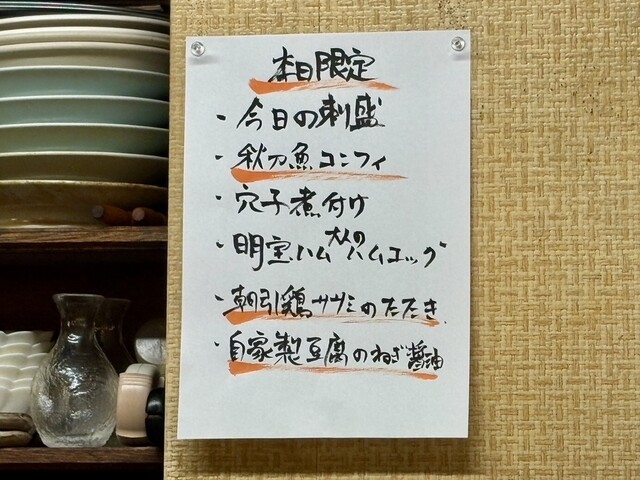 本日限定
・今日の刺盛
・秋刀魚コンフィ
・穴子煮付け
・明宝ハム大人のハムエッグ
・朝引鶏ササミのたたき
・自家製豆腐のねぎ醤油